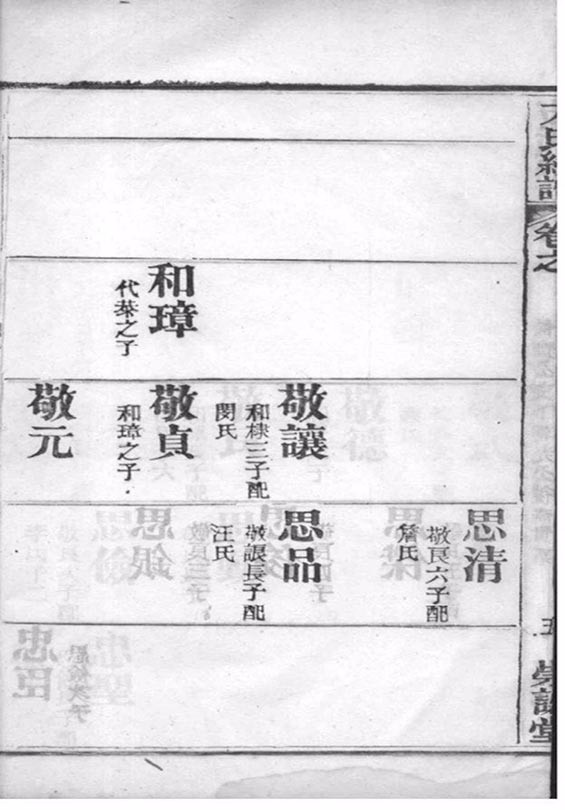 卷之
和璋
代棻之子
敬讓
和棣三子配
閔氏
敬貞
和璋之子
敬元
思清
敬良六子配
詹氏
思品
敬讓長子配
汪氏
五